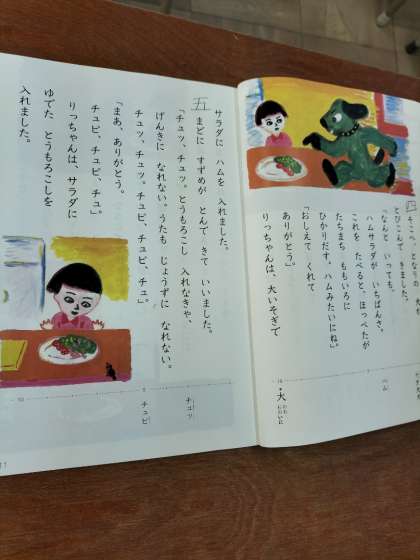 とびこんで きました。
「なんと いっても、
ハムサラダが いちばんさ。
これを たべると、ほっぺたが
たちまち ももいろに
ひかりだす。ハムみたいにね。」
「おしえて くれて
ありがとう。」
りっちゃんは、大いそぎで
ハム
大
サラダに ハムを 入れました。
五
まどに すずめが とんで きて いいました。
「チュッ、チュッ。とうもろこし 入れなきゃ、
げんきに なれない。うたも じょうずに なれない。
チュッ、チュッ、チュピ、チュピ、チュ。」
「まあ、ありがとう。
チュピ、チュピ、チュ。」
りっちゃんは、サラダに
ゆでた とうもろこしを
入れました。
チュッ
チュピ